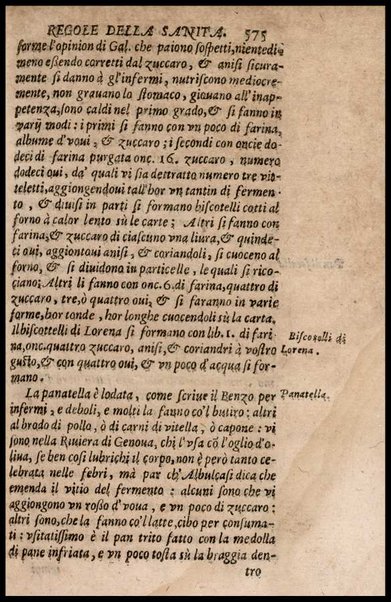 REGOLE DELLA SANITA. 575
forme l'opinion di Gal. che paiono sospetti, nientedi
meno essendo corretti dal zuccaro, & anisi sicura-
mente si danno à gl'infermi, nutriscono mediocre-
mente, non grauano lo stomaco, giouano all'inap-
petenza, sono caldi nel primo grado, & si fanno in
varij modi: i primi si fanno con vn poco di farina,
albume d'voui, & zuccaro; i secondi con oncie do
deci di farina purgata onc. 16. zuccaro, numero
dodeci oui, da' quali vi sia dettratto numero tre vio-
teletti, aggiongendoui tall'hor vn tantin di fermen-
to, & diuisi in parti si formano biscotelli cotti al
forno à calor lento sù le carte; Altri si fanno con
farina, & zuccaro di ciascuno vna liura, & quinde-
ci oui, aggiontoui anisi, & coriandoli, si cuoceno al
forno, & si diuidono in particelle, le quali si rico-
ciano; Altri li fanno con onc. 6. di farina, quattro di
zuccaro, tre, ò quattro oui; & si faranno in varie
forme, hor tonde, hor longhe cuocendoli sù la carta.
Il biscottelli di Lorena si formano con lib. 1. di fari
na, onc. quattro zuccaro, anisi, & coriandri à vostro
gusto, & con quattro oui, & vn poco d'acqua si for-
mano.
Biscotelli di
Lorena.
La panatella è lodata, come scriue il Benzo per
infermi, e deboli, e molti la fanno cō'l butiro: altri
al brodo di pollo, ò di carni di vitella, ò capone: vi
sono nella Riuiera di Genoua, chi l'vsa cō l'oglio d'o-
liua, se ben così lubrichi il corpo, non è però tanto ce-
lebrata nelle febri, mà par ch'Albulcasi dica che
emenda il vitio del fermento: alcuni sono che vi
aggiongono vn rosso d'voua, e vn poco di zuccaro:
altri sono, che la fanno co'l latte, cibo per consuma-
ti: vsitatissimo è il pan trito fatto con la medolla
di pane infriata, e vn poco tosta sù la braggia den-
Panatella.
tro